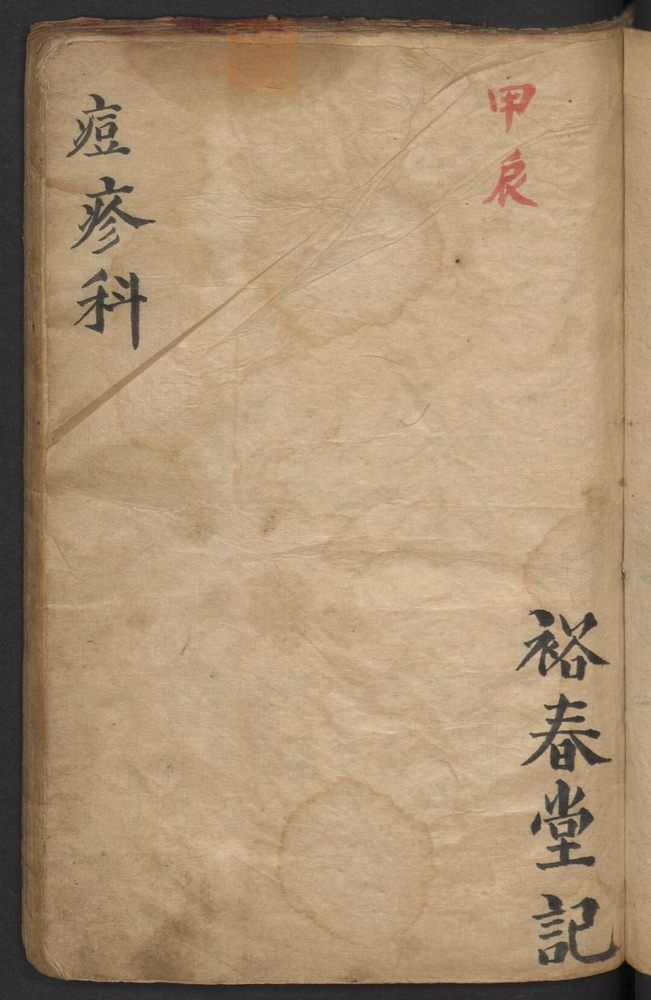 甲辰
裕春堂記
痘疹科